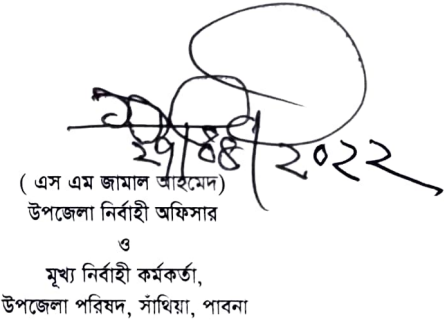 ২৭/৪৪/২০২২
( এস এম জামাল আহমেদ)
উপজেলা নির্বাহী অফিসার
ও
মূখ্য নির্বাহী কর্মকর্তা,
উপজেলা পরিষদ, সাঁথিয়া, পাবনা